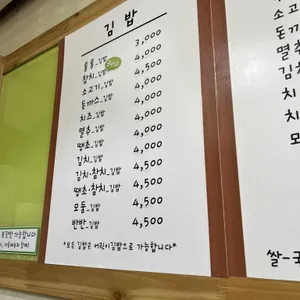 김밥
김밥 3,000
참치_김밥 4,000
소고기_김밥 4,500
돈까스_김밥 4,000
치즈_김밥 4,000
멸추_김밥 4,000
땡초_김밥 4,000
김치_김밥 4,000
김치·참치_김밥 4,500
땡초·참치_김밥 4,500
모듬_김밥 4,500
반반_김밥 4,500
*모든 김밥은 어린이김밥으로 가능합니다*
가능합니다
소고
돈까
멸추
김치
치
모
쌀-국